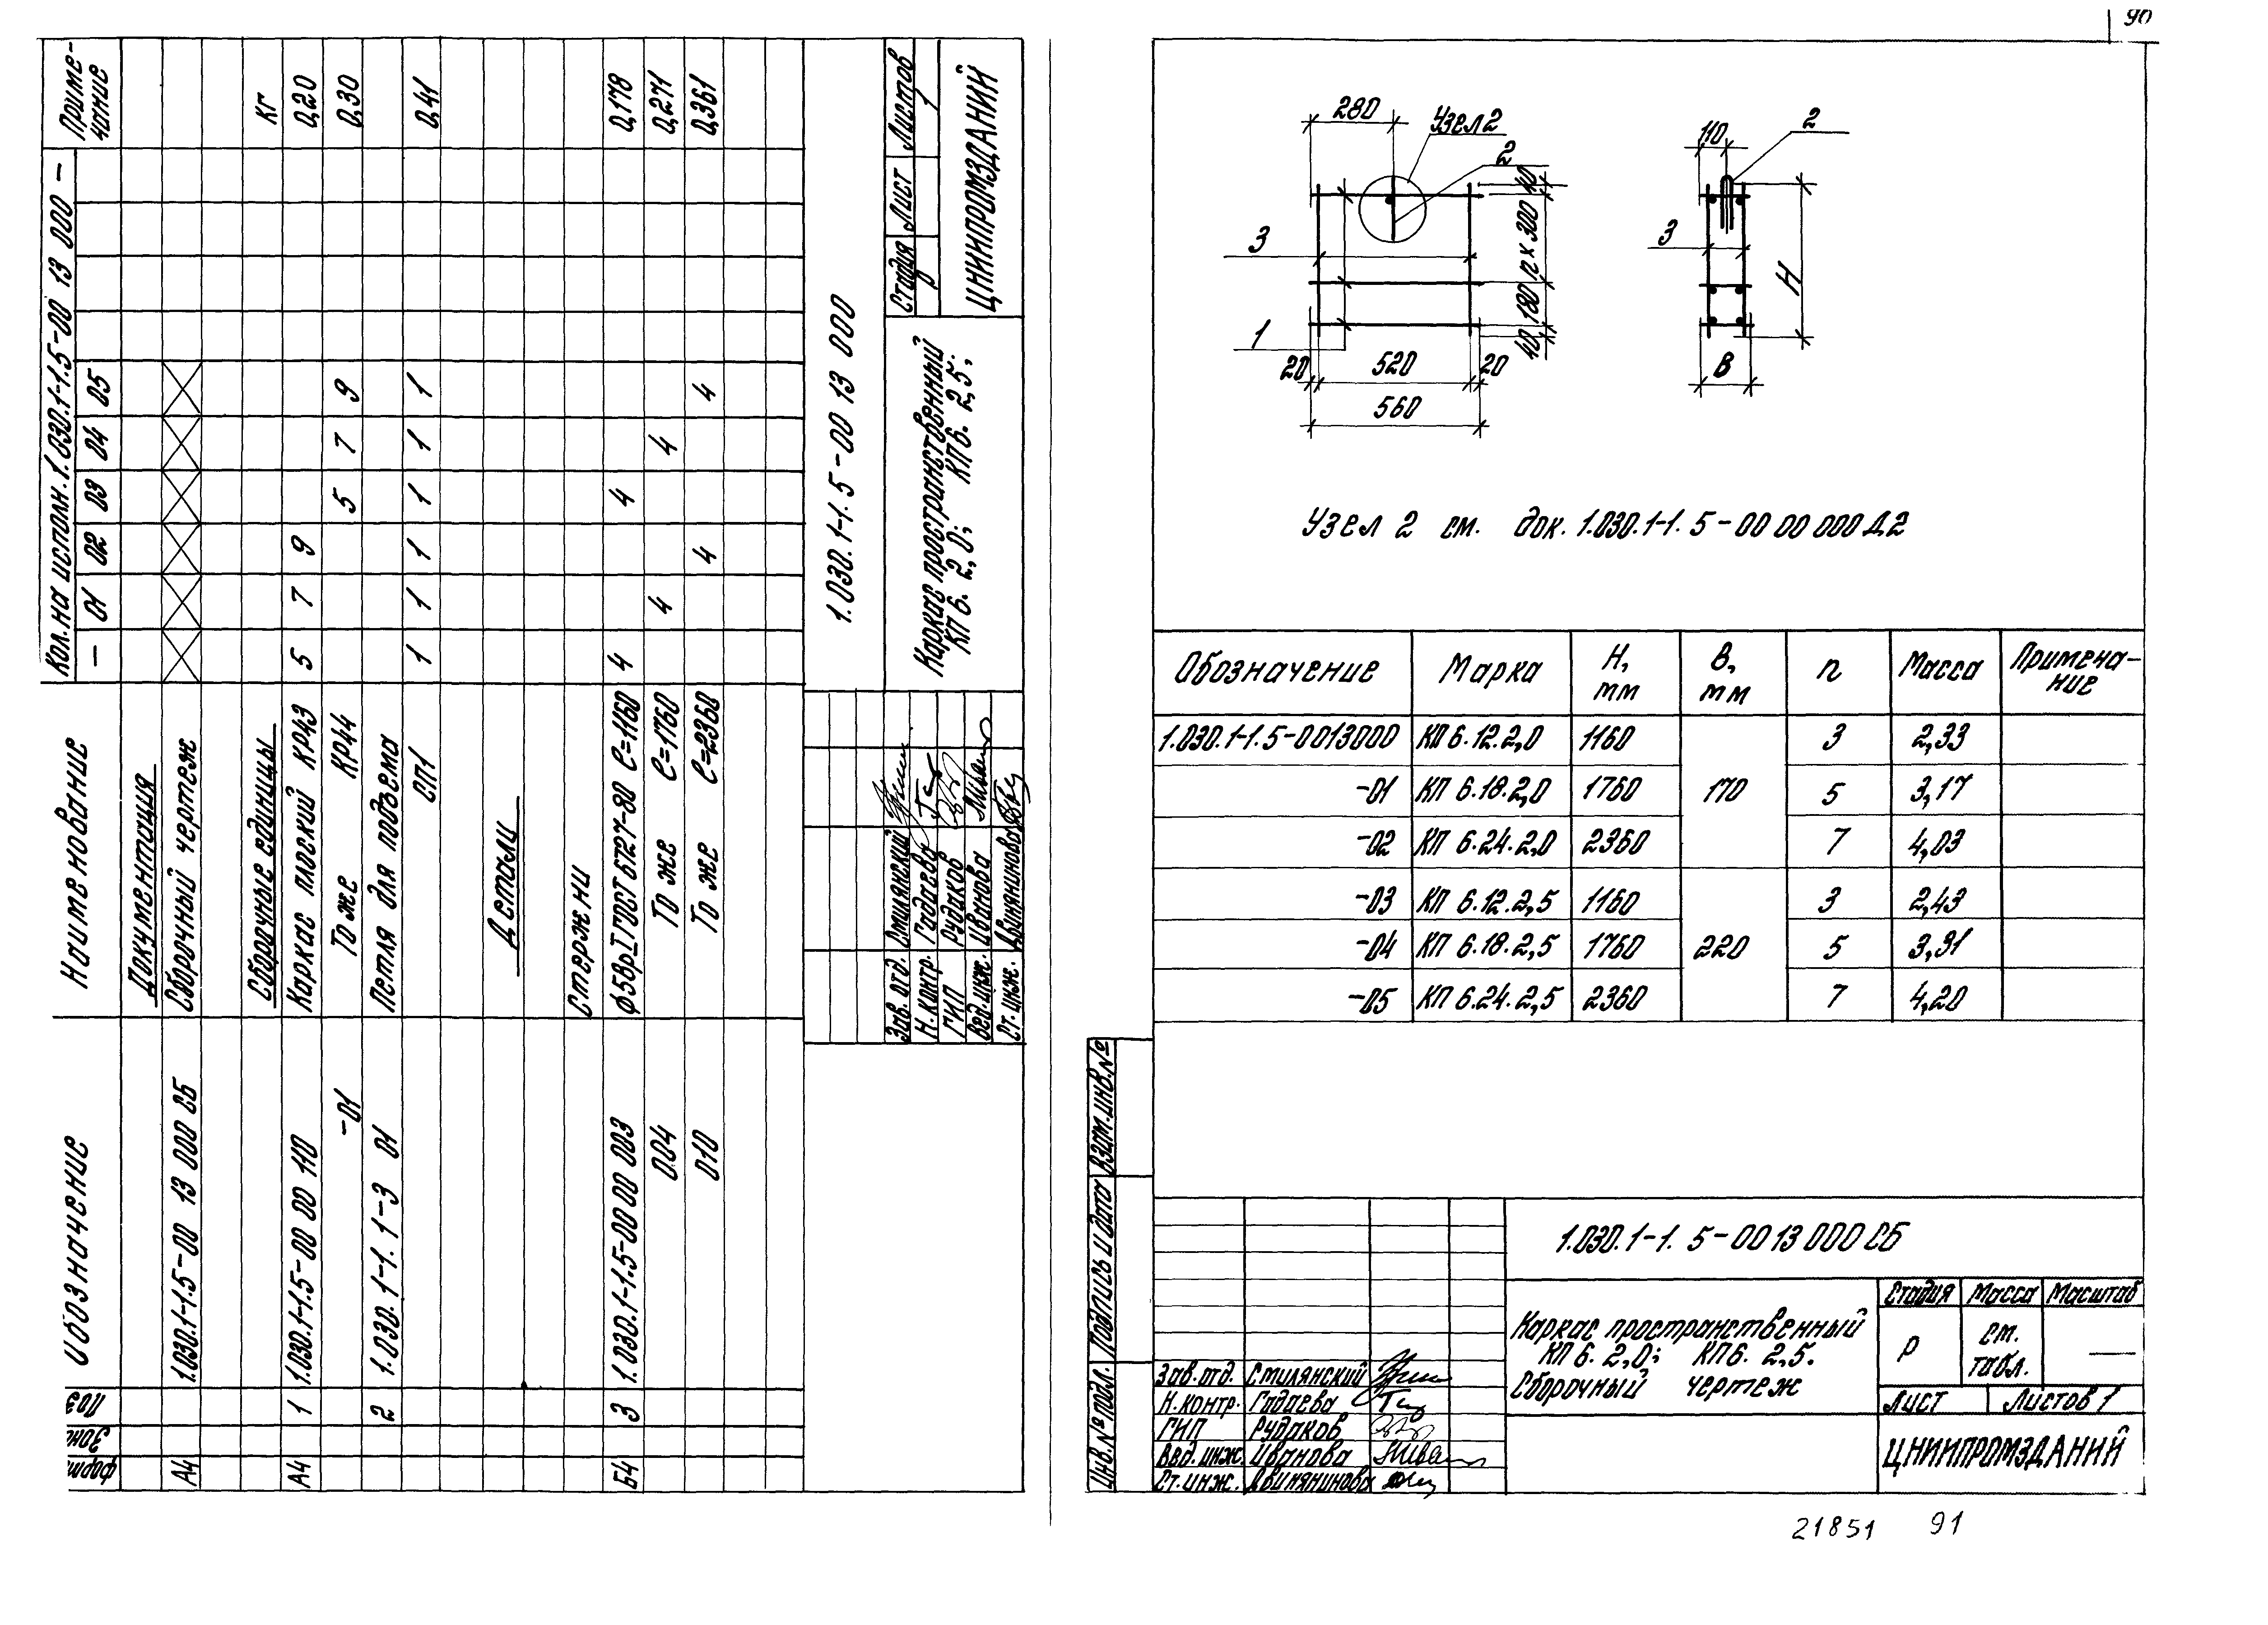 90
Формат Зона Поз. Обозначение Наименование Кол. на исполн. 1.030.1-1.5-00 13 000 — Приме-
чание
— 01 02 03 04 05
Документация
А4 1.030.1-1.5-00 13 000 СБ Сборочный чертеж
Сборочные единицы кг
А4 1 1.030.1-1.5-00 00 110 Каркас плоский КР43 5 7 9 0,20
-01 То же КР44 5 7 9 0,30
2 1.030.1-1.1-3 01 Петля для подъема
СП1 1 1 1 1 1 1 0,41
Детали
Стержни
Б4 3 1.030.1-1.5-00 00 003 ф5ВрI ГОСТ 6727-80 ℓ=1160 4 4 0,178
004 То же ℓ=1760 4 4 0,271
010 То же ℓ=2360 4 4 0,361
1.030.1-1.5-00 13 000
Зав. отд. Смилянский
Н.контр. Гадаева
ГИП Рудаков
Вед.инж. Иванова
Ст.инж. Двинянинова
Каркас пространственный
КП 6. 2,0; КП 6. 2,5.
Стадия Лист Листов
Р 1
ЦНИИПРОМЗДАНИЙ
280 Узел 2 2 3 1
40 180 n×300 40
20 520 20
560
110 2 3 H B
Узел 2 см. док. 1.030.1-1.5-00 00 000 Д2
Обозначение Марка Н, мм В, мм n Масса Примеча-
ние
1.030.1-1.5-0013000 КП 6.12.2,0 1160 3 2,33
-01 КП 6.18.2,0 1760 170 5 3,17
-02 КП 6.24.2,0 2360 7 4,03
-03 КП 6.12.2,5 1160 3 2,43
-04 КП 6.18.2,5 1760 220 5 3,31
-05 КП 6.24.2,5 2360 7 4,20
Инв.№ подл. Подпись и дата Взам.инв.№
1.030.1-1.5-00 13 000 СБ
Зав.отд. Смилянский
Н.контр. Гадаева
ГИП Рудаков
Вед.инж. Иванова
Ст.инж. Двинянинова
Каркас пространственный
КП 6. 2,0; КП 6. 2,5.
Сборочный чертеж
Стадия Масса Масштаб
Р см. табл. —
Лист Листов 1
ЦНИИПРОМЗДАНИЙ
21851 91